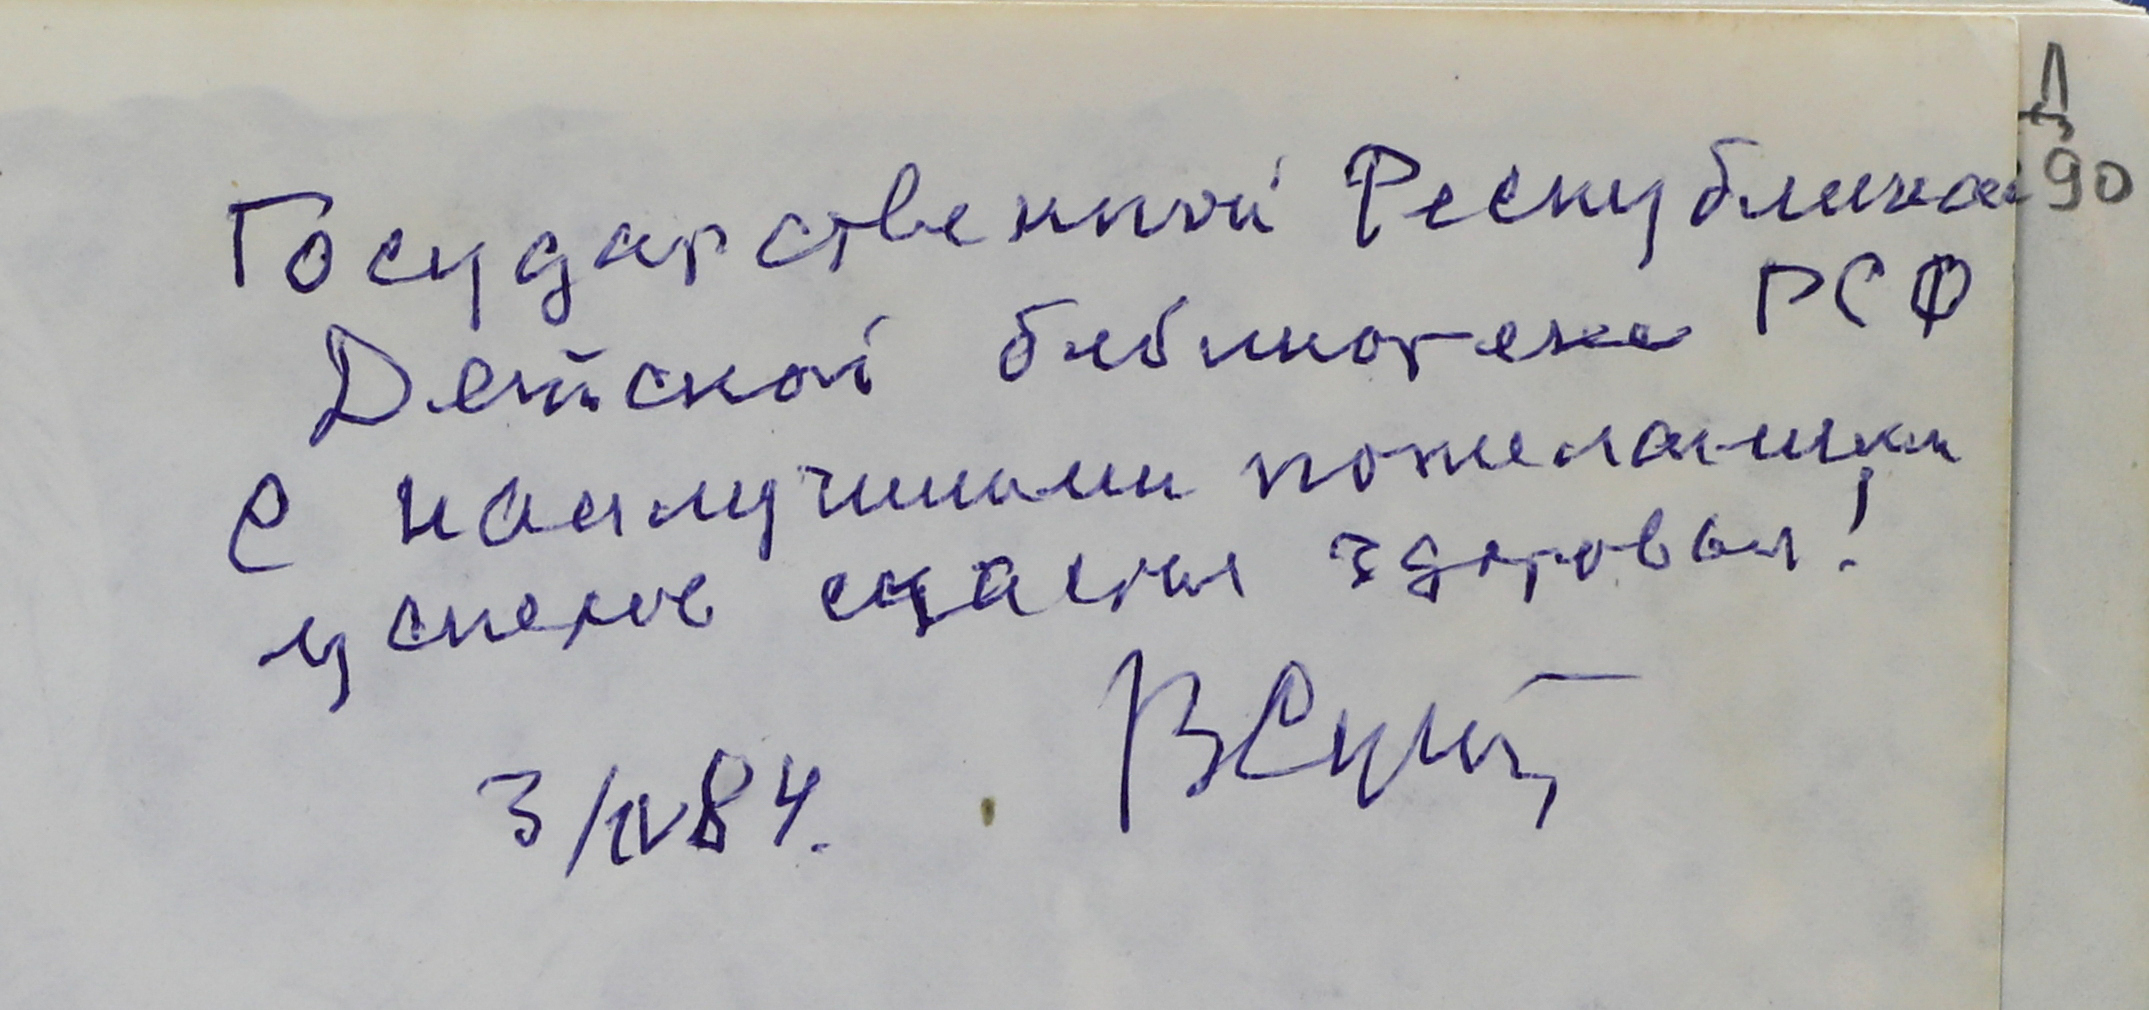 Государственной Республикан
Д
90
Детской библиотеке РСФ
С наилучшими пожеланиями
успехов счастья здоровья!
3/IV 84.